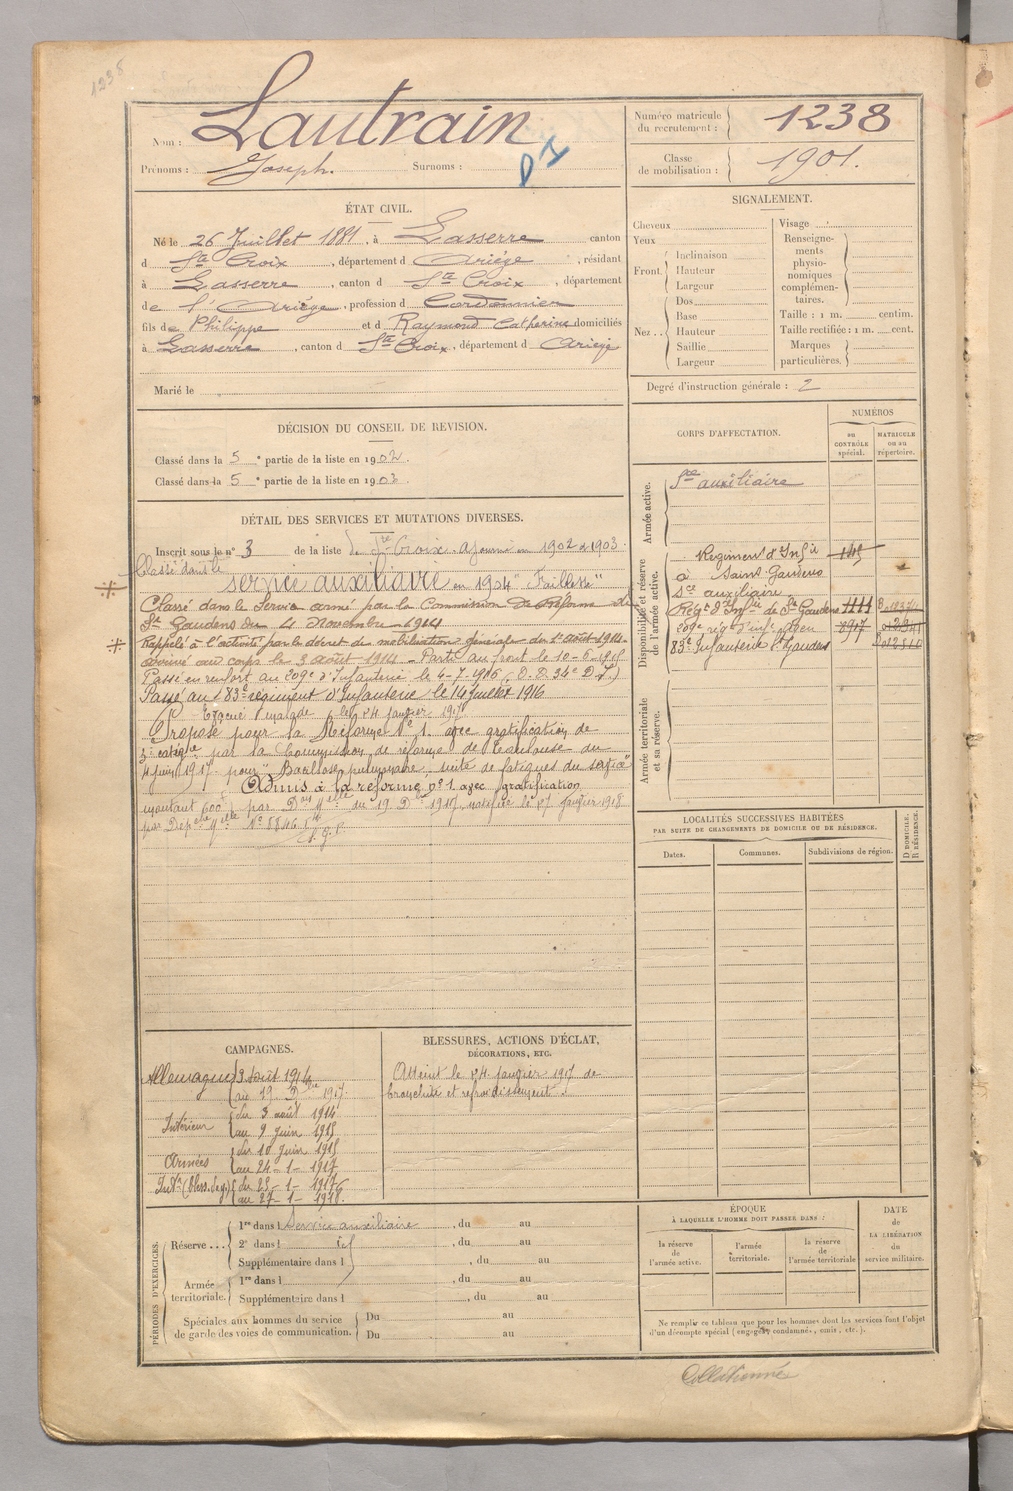 1238
Nom : Lautrain
Prénoms : Joseph. Surnoms :
Numéro matricule du recrutement : 1238
Classe de mobilisation : 1901.
ÉTAT CIVIL.
Né le 26 Juillet 1881, à Lasserre canton
d Ste Croix, département d Ariège, résidant
à Lasserre, canton d Ste Croix, département
de l'Ariège, profession d Cordonnier
fils de Philippe et d Raymond Catherine domiciliés
à Lasserre, canton d Ste Croix, département d Ariège
Marié le
SIGNALEMENT.
Cheveux
Yeux
Front. Inclinaison
Hauteur
Largeur
Nez Dos
Base
Hauteur
Saillie
Largeur
Visage :
Renseigne-
ments
physio-
nomiques
complémen-
taires.
Taille : 1 m. centim.
Taille rectifiée : 1 m. cent.
Marques
particulières.
Degré d'instruction générale : 2
DÉCISION DU CONSEIL DE REVISION.
Classé dans la 5e partie de la liste en 1902.
Classé dans la 5e partie de la liste en 1903.
DÉTAIL DES SERVICES ET MUTATIONS DIVERSES.
Inscrit sous le n° 3 de la liste de Ste Croix Ajourné en 1902 et 1903.
Classé dans le
service auxiliaire en 1904 "Faiblesse"
Classé dans le Service armé par la Commission de Réforme de
St Gaudens du 4 Novembre 1914
Rappelé à l'activité par le décret de mobilisation générale du 1er août 1914
arrivé au corps le 3 août 1914 - Parti au front le 10-6-1915
Passé en renfort au 209e d'Infanterie le 4-7-1916 (D.D. 34e D.I.)
Passé au 83e régiment d'Infanterie le 14 juillet 1916
Evacué malade le 24 janvier 1917
Proposé pour la Réforme N° 1. avec gratification de
3e catigie par la Commission de réforme de Toulouse du
4 juin 1917 pour "Bacillose pulmonaire, suite de fatigues du service"
Admis à la réforme n° 1 avec gratification
montant 600f par Don Mlle du 19 Dbre 1917 notifiée le 27 janvier 1918
par Depche Mlle N° 8846
CORPS D'AFFECTATION.
NUMÉROS
au CONTRÔLE spécial.
MATRICULE ou au répertoire.
Armée active.
Sce auxiliaire
Disponibilité et réserve de l'armée active.
Régiment d'Infie 145
à Saint-Gaudens
Sce auxiliaire
Régt d'Infie de St Gaudens 1111
209e rég d'inf. Agen 8917
83e Infanterie St Gaudens
Armée territoriale et sa réserve.
LOCALITÉS SUCCESSIVES HABITÉES
PAR SUITE DE CHANGEMENTS DE DOMICILE OU DE RÉSIDENCE.
Dates.
Communes.
Subdivisions de région.
D DOMICILE. R RÉSIDENCE.
CAMPAGNES.
Allemagne 3 Août 1914
au 19 Dbre 1917.
Intérieur du 3 août 1914
au 9 juin 1915
Armées du 10 juin 1915
au 24-1-1917
Intr (bless. de g.) du 25-1-1917
au 27-1-1918.
BLESSURES, ACTIONS D'ÉCLAT,
DÉCORATIONS, ETC.
Atteint le 24 janvier 1917 de
bronchite et refroidissement.
PÉRIODES D'EXERCICES.
Réserve... 1re dans l Service auxiliaire, du au
2e dans l id, du au
Supplémentaire dans l, du au
Armée territoriale. 1re dans l, du au
Supplémentaire dans l, du au
Spéciales aux hommes du service
de garde des voies de communication. Du au
Du au
ÉPOQUE
À LAQUELLE L'HOMME DOIT PASSER DANS :
la réserve de l'armée active.
l'armée territoriale.
la réserve de l'armée territoriale
DATE
de
LA LIBÉRATION
du
service militaire.
Ne remplir ce tableau que pour les hommes dont les services font l'objet
d'un décompte spécial (engagés, condamnés, omis, etc.).
Collationné